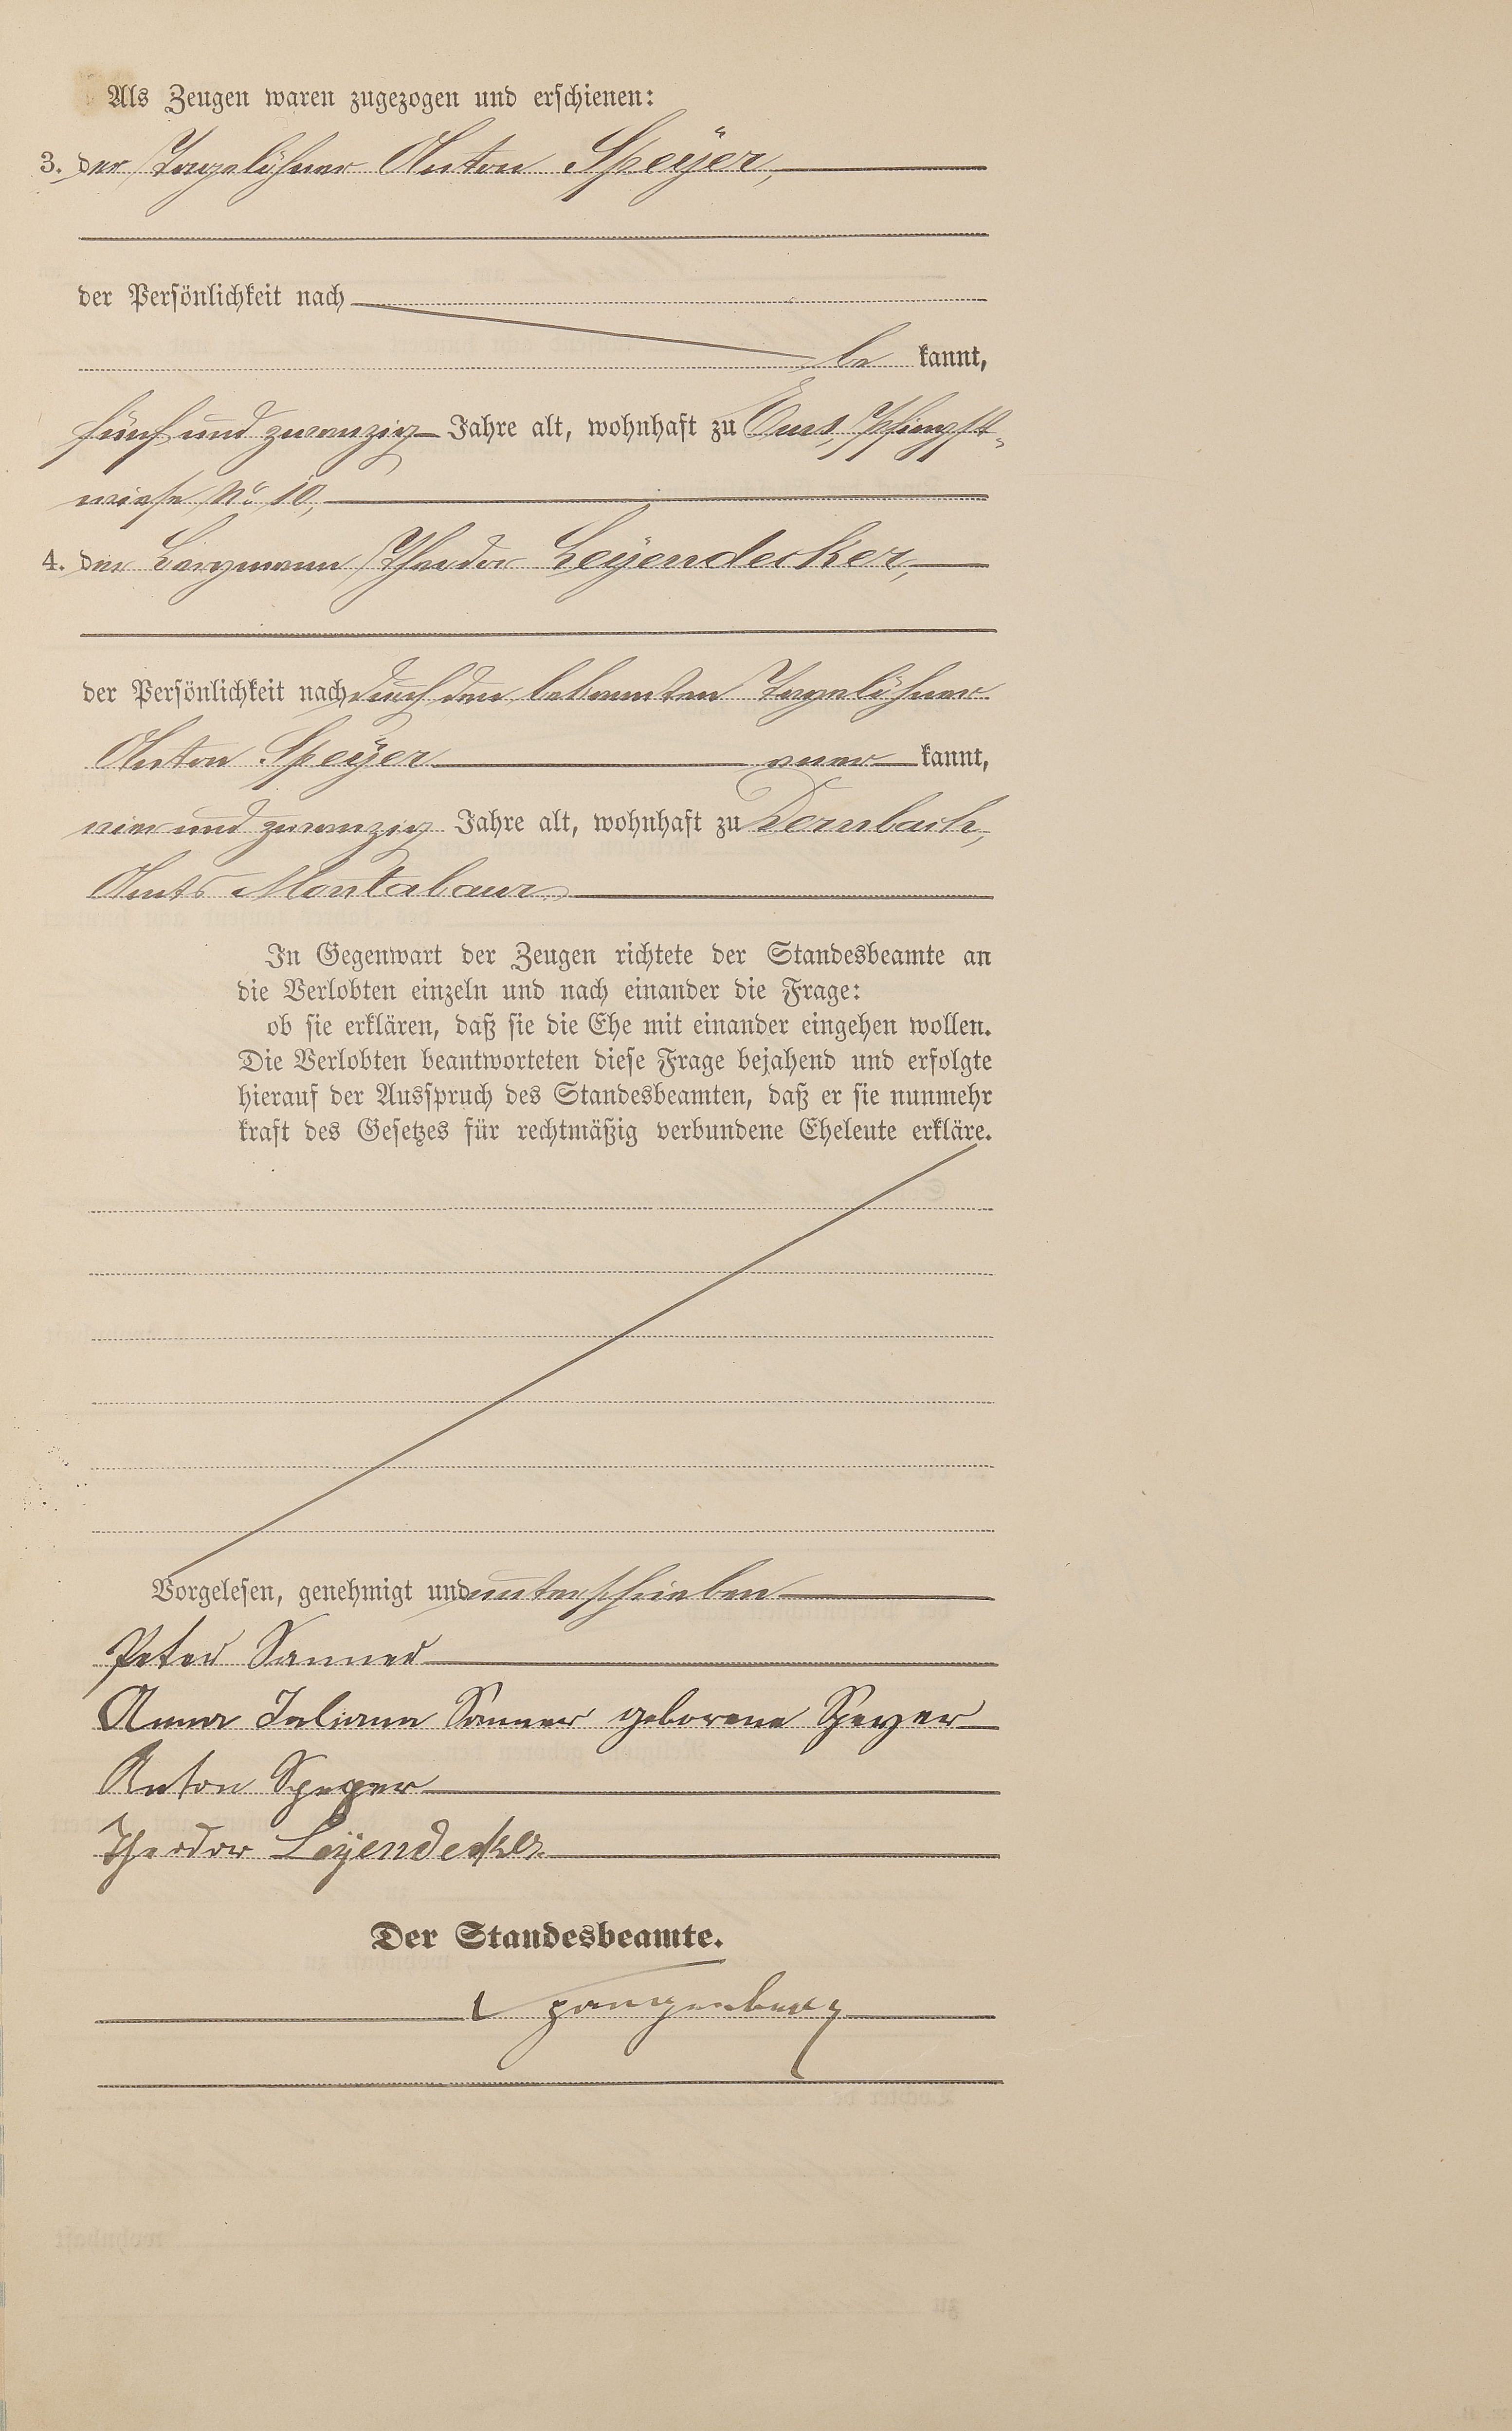 Als Zeugen waren zugezogen und erschienen:
3. der Tagelöhner Anton Speÿer,
der Persönlichkeit nach
be kannt,
fünf und zwanzig Jahre alt, wohnhaft zu Ems, Pfingst-
wiese No 10,
4. der Bergmann Theodor Leÿendecker,
der Persönlichkeit nach durch den bekannten Tagelöhner
Anton Speÿer aner kannt,
vier und zwanzig Jahre alt, wohnhaft zu Dernbach,
Amts Montabaur
In Gegenwart der Zeugen richtete der Standesbeamte an
die Verlobten einzeln und nach einander die Frage:
ob sie erklären, daß sie die Ehe mit einander eingehen wollen.
Die Verlobten beantworteten diese Frage bejahend und erfolgte
hierauf der Ausspruch des Standesbeamten, daß er sie nunmehr
kraft des Gesetzes für rechtmäßig verbundene Eheleute erkläre.
Vorgelesen, genehmigt und unterschrieben
Peter Sanner
Anna Juliana Sanner geborene Speyer
Anton Speyer
Theodor Leÿendecker
Der Standesbeamte.